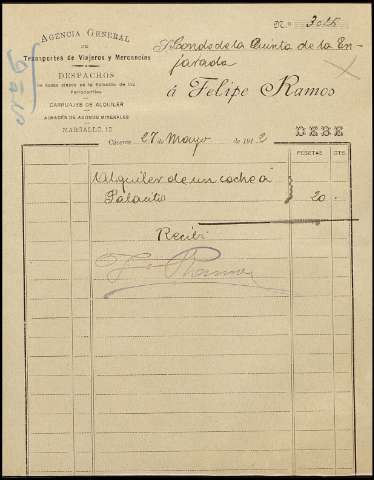 Nº 3025
AGENCIA GENERAL
DE
Transportes de Viajeros y Mercancías
DESPACHOS
de todas clases en la Estación de los
Ferrocarriles
CARRUAJES DE ALQUILER
ALMACÉN DE ABONOS MINERALES
MARGALLO, 12
Sr. Conde de la Quinta de la En-
jarada
á Felipe Ramos
Cáceres 27 de Mayo de 191
DEBE
PESETAS CTS.
Alquiler de un coche á
Palacito 20
Recibí
F. Ramos